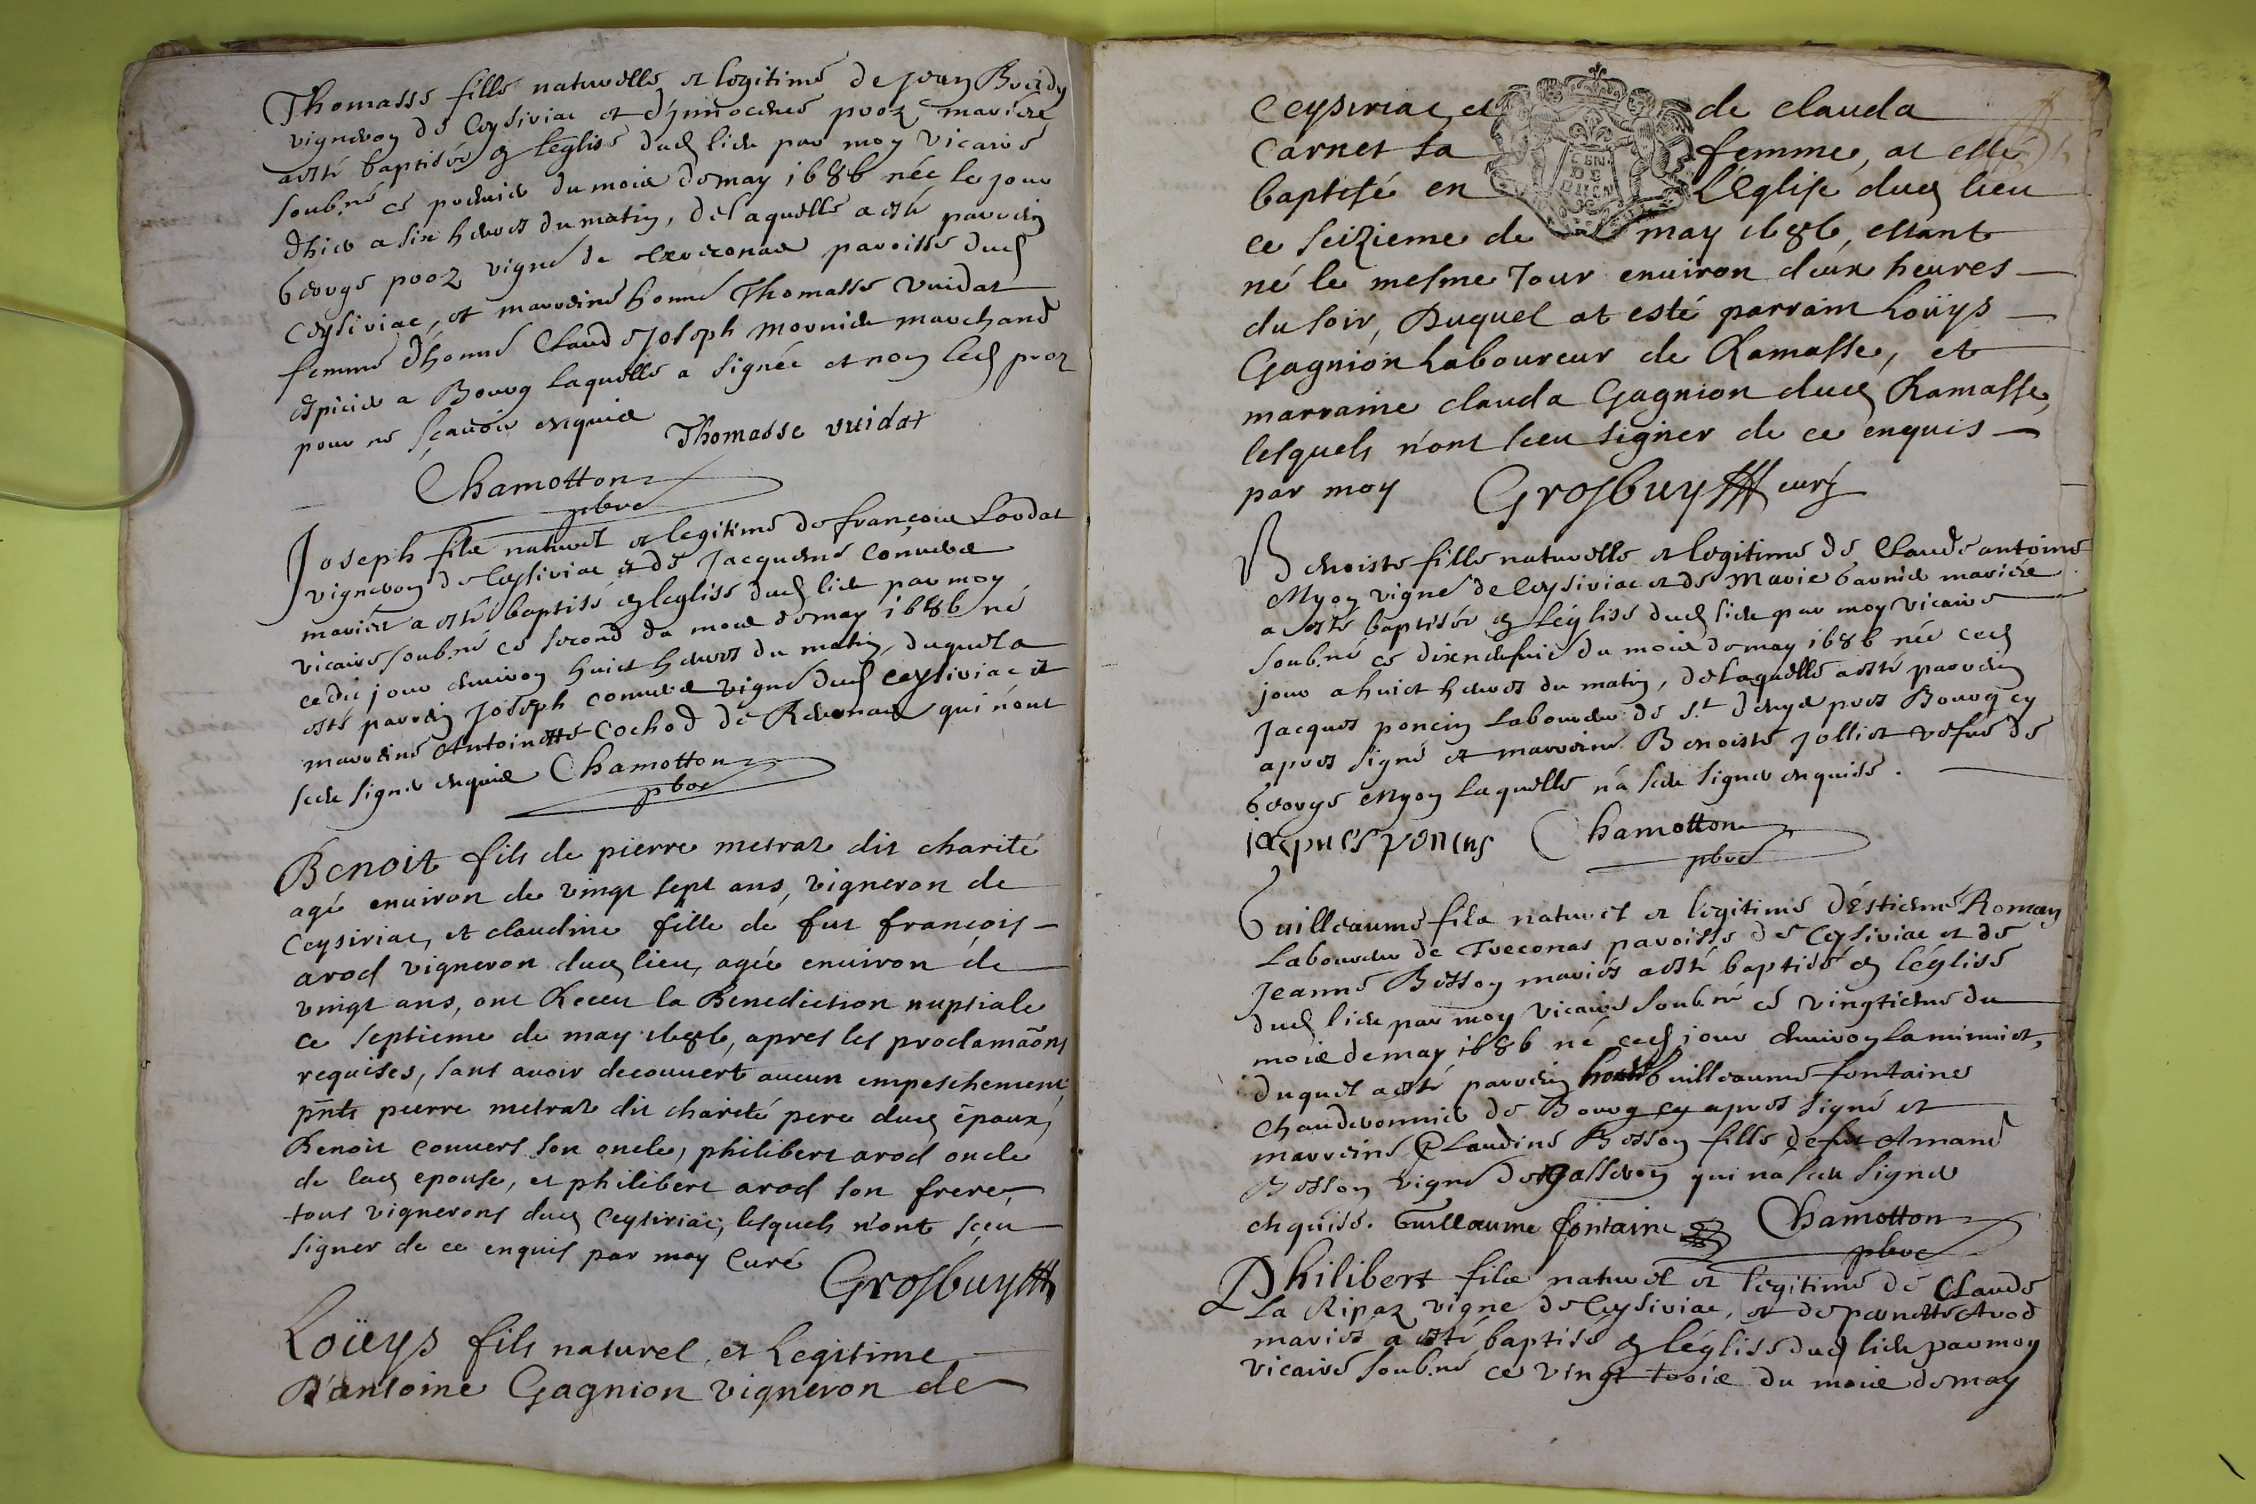 Thomasse fille naturelle et legitime de Jean
vigneron de Ceysiriac et d'ynnocence mariés
a esté baptisée en léglise dud lieu par moy vicaire
soub.né ce du mois de may 1686 née le jour
d'hier a six heures du matin, de laquelle a esté parrein
George vigné de paroisse dud
Ceysiriac, et marreine honné Thomasse Vuidat
femme d'honné Claude Joseph marchand
a Bourg laquelle a signée et non led
pour ne sçavoir enquis
Thomasse vuidat
Chamotton
pbre
Joseph fils naturel et legitime de françois Loodat
vigneron de Ceysiriac et de Jacqueme
mariés a esté baptisé en leglise dud lieu par moy
vicaire soub.né ce second du mois de may 1686 né
cedit jour environ huict heures du matin, duquel a
esté parrein Joseph vigné dud Ceysiriac et
marreine Antoinette Cochod de qui n'ont
sceu signer enquis Chamotton
pbre
Benoit fils de pierre metraz dit charité
agé enuiron de vingt sept ans, vigneron de
Ceysiriac, et claudine fille de fut françois
arod vigneron dud lieu, agée enuiron de
vingt ans, ont Receu la Benediction nuptiale
ce septieme de may 1686, apres les proclamãons
requises, sans auoir decouuert aucun empeschement,
pñts pierre metraz dit charité pere dud époux,
Benoit conuers son oncle, philibert arod oncle
de lad epouse, et philibert arod son frere,
tous vignerons dud Ceysiriac, lesquels n'ont sçeu
signer de ce enquis par moy Curé
Grosbuy
Loüys fils naturel et Legitime
D'antoine Gagnion vigneron de
Ceysiriac et de clauda
Carnet sa femme, at esté
baptisé en L'Eglise dud lieu
ce seizieme de may 1686, estant
né le mesme Jour enuiron deux heures
du soir, Duquel at esté parrain Loüys
Gagnion Laboureur de Ramasse, et
marraine clauda Gagnion dud Ramasse,
lesquels n'ont sceu signer de ce enquis
par moy Grosbuy curé
Benoiste fille naturelle et legitime de Claude antoine
Myon vigné de Ceysiriac et de Marie mariés
a esté baptisée en léglise dud lieu par moy vicaire
soub.né ce dixneufvie du mois de may 1686 née ced
jour a huict heures du matin, de laquelle a esté parrein
Jacques poncin Laboureur de S.t denys pres Bourg cy
apres signé et marreine Benoiste Jolliet vefve de
George Myon laquelle n'a sceu signer enquise.
iacques poncin Chamotton
pbre
Guilleaume fils naturel et légitime d'Estienne Roman
Laboureur de Treconas paroisse de Ceysiriac et de
Jeanne Besson mariés a esté baptisé en léglise
dud lieu par moy vicaire soub.né ce vingtiesme du
mois de may 1686 né ced jour environ la minuict,
duquel a esté parrein Guilleaume fontaine
Chauderonnier de Bourg cy apres signé et
marreine Claudine Besson fille de fut Amand
Besson vigné de qui na sceu signer
enquise. Guillaume fontaine Chamotton
pbre
Philibert fils naturel et légitime de Claude
La Ripaz vigné de Ceysiriac, et de pernette Arod
mariés a esté baptisé en léglise dud lieu par moy
vicaire soub.né ce vingt trois du mois de may